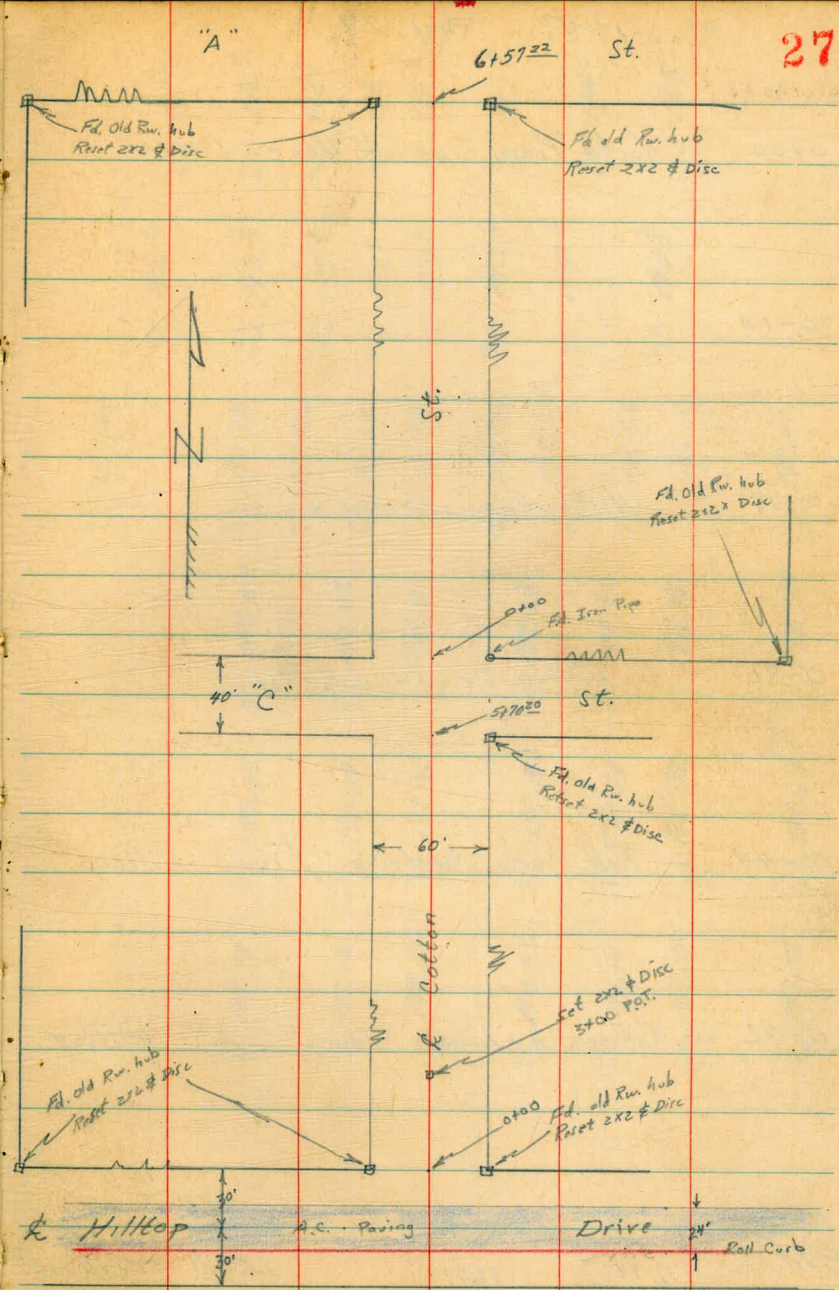 "A"
6+57 22
St.
27
Fd. Old Rw. hub
Reset 2x2 & Disc
Fd old Rw. hub
Reset 2x2 & Disc
N
St.
Fd. Old Rw. hub
Reset 2x2 x Disc
0+00
Fd. Iron Pipe
40' "C"
St.
5+70 20
Fd. old Rw. hub
Retset 2x2 & Disc
60'
℄ Cotton
Set 2x2 & Disc
3+00 P.O.T.
Fd. old Rw. hub
Reset 2x2 & Disc
0+00
Fd. old Rw. hub
Reset 2x2 & Disc
30'
℄ Hilltop A.C. Paving Drive 24'
Roll Curb
30'